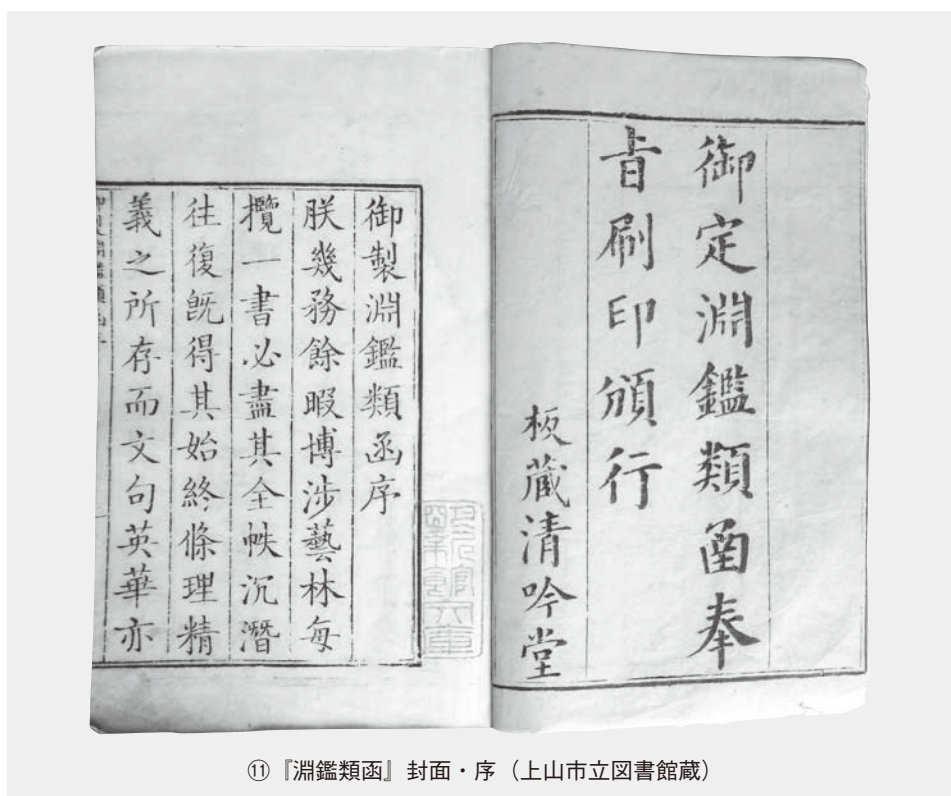 御定淵鑑類函奉
旨刷印頒行
板藏清吟堂
御製淵鑑類函序
朕幾務餘暇博涉藝林每
攬一書必盡其全帙沉潛
往復旣得其始終條理精
義之所存而文句英華亦
⑪『淵鑑類函』封面・序（上山市立図書館蔵）